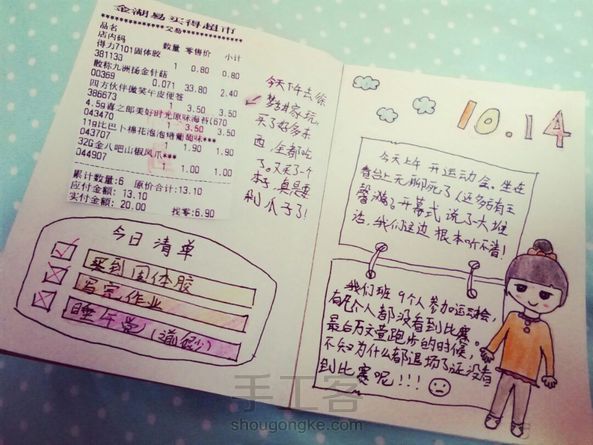 金湖易买得超市
交易
品名
店内码 数量 零售价 小计
得力7101固体胶
381133 1 0.80 0.80
散称九洲扬金针菇
00369 0.071 33.80 2.40
四方伙伴微笑牛皮便签
386673 1 3.50 3.50
4.5g喜之郎美好时光原味海苔(670
043470 1 3.50 3.50
11g比巴卜棉花泡泡糖葡萄味***
043707 1 1.90 1.90
32G金八吧山椒凤爪***
044907 1 1.00 1.00
累计数量:6 原价合计:13.10
应付金额: 13.10
实付金额: 20.00 找零:6.90
今天下午去徐
梦
家玩,
买了好多东
西,全都吃
了。又买了个
本子,真是要
剁爪子了!
今日清单
买到固体胶
写完作业
睡午觉(
10.14
今天上午开运动会,坐在
看台上无聊死了(还多有主
席
)。开幕式说了大堆
话,我们这边根本听不着!
我们班9个人参加运动会,
有几个人都没看到比赛。
最后万文萱跑步的时候,
不知为什么都退场了还没看
到比赛呢!!!
手工客
shougongke.com